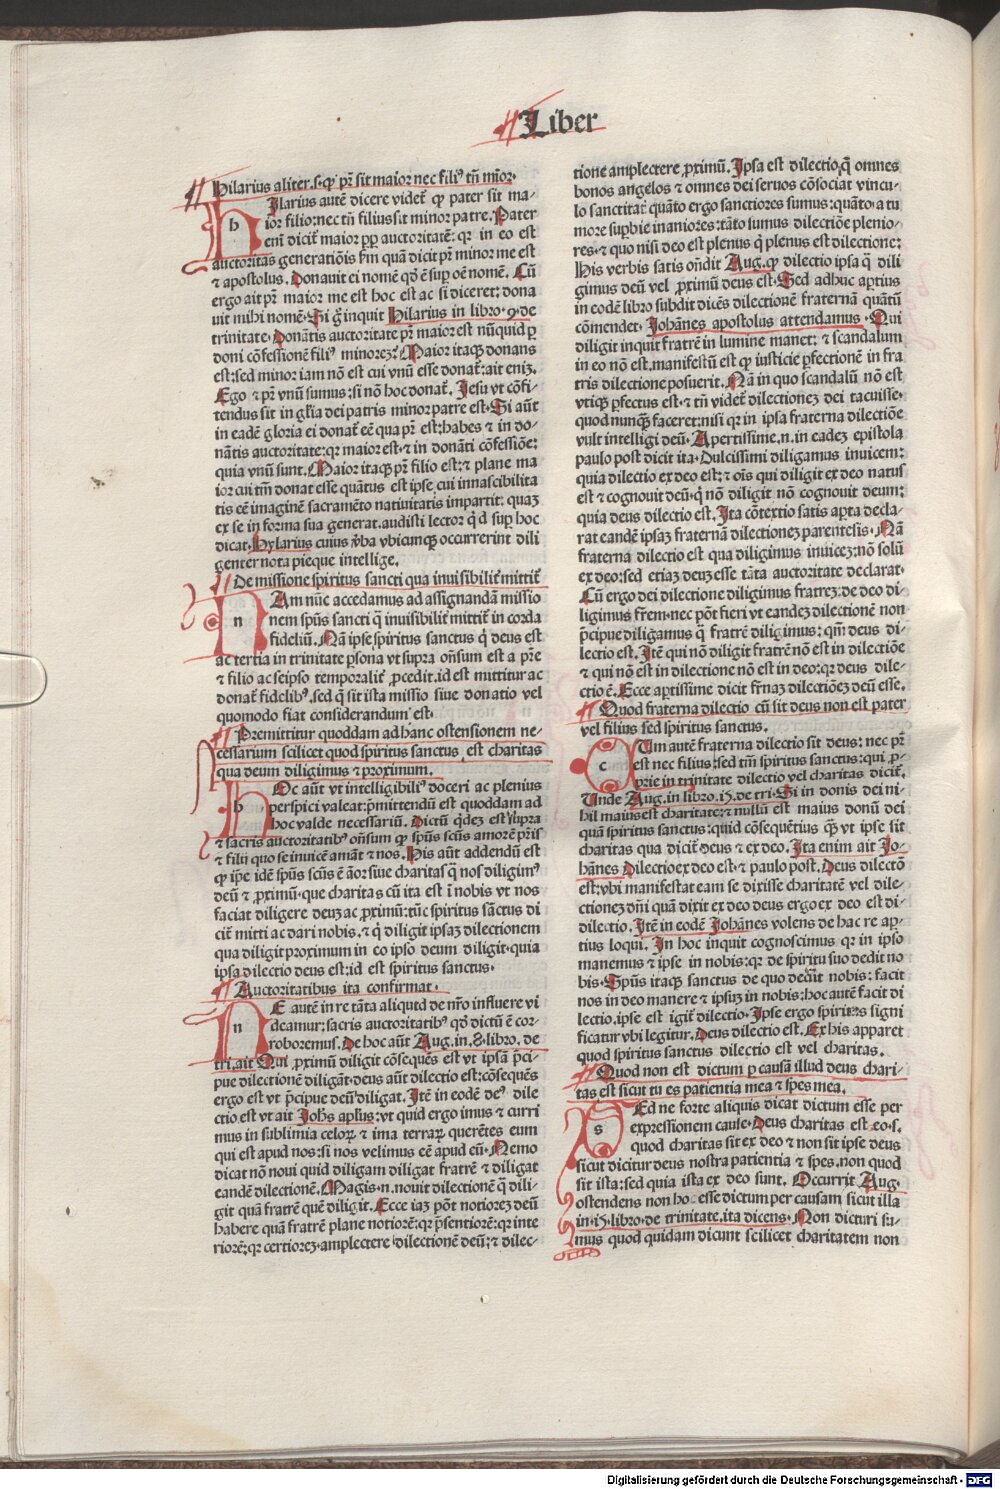 Liber
Hilarius aliter.s.ꝙ pr̄ sit maior nec filiꝰ tn̄ mīor.
h Ilarius autē dicere videt᷑ ꝙ pater sit ma-
ior filio: nec tn̄ filius sit minor patre. Pater
enī dicit᷑ maior ꝓp auctoritatē: qꝛ in eo est
auctoritas generatiōis ẜm quā dicit pr̄ minor me est
⁊ apostolus. Donauit ei nomē qd̄ ē suꝑ oē nomē. Cū
ergo ait pr̄ maior me est hoc est ac si diceret: dona
uit mihi nomē. Si g̊ inquit Hilarius in libro.9.de
trinitate. Donātis auctoritate pr̄ maior est nūquid ꝑ
doni cōfessionē filiꝰ minorez? Maior itaqꝫ donans
est: sed minor iam nō est cui vnū esse donat᷑: ait eniz.
Ego ⁊ pr̄ vnū sumus: si nō hoc donat᷑. Jesu vt cōfi-
tendus sit in glīa dei patris minor patre est. Si aūt
in eadē gloria ei donat᷑ eē qua pr̄ est: habes ⁊ in do-
nātis auctoritate: qꝛ maior est. ⁊ in donāti cōfessiōe:
quia vnū sunt. Maior itaqꝫ pr̄ filio est: ⁊ plane ma
ior cui tm̄ donat esse quātus est ipse cui innascibilita
tis eē imaginē sacramēto natiuitatis impartit: quaz
ex se in forma sua generat. audisti lector q̇d suꝑ hoc
dicat. Hylarius cuius ꝟba vbicunqꝫ occurrerint dili
genter nota pieque intellige.
De missione spiritus sancti qua inuisibilit᷑ mittit᷑
n Am nūc accedamus ad assignandā missio
nem spūs sancti q̇ inuisibilit᷑ mittit᷑ in corda
fideliū. Nā ipse spiritus sanctus q̇ deus est
ac tertia in trinitate ꝑsona vt supra oñsum est a pr̄e
⁊ filio ac seipso temporalit᷑ ꝓcedit. id est mittitur ac
donat᷑ fidelibꝰ. sed q̇ sit ista missio siue donatio vel
quomodo fiat considerandum est.
Premittitur quoddam ad hanc ostensionem ne-
cessarium scilicet quod spiritus sanctus est charitas
qua deum diligimus ⁊ proximum.
h Oc aūt vt intelligibiliꝰ doceri ac plenius
perspici valeat: p̄mittendū est quoddam ad
hoc valde necessariū. Dictū q̇dez est supra
⁊ sacris auctoritatibꝰ oñsum ꝙ spūs scūs amor ē pr̄is
⁊ filii quo se inuicē amāt ⁊ nos. His aūt addendū est
ꝙ ip̄e idē spūs scūs ē āoꝛ siue charitas q̄ nos diligimꝰ
deū ⁊ ꝓximū. que charitas cū ita est ī nobis vt nos
faciat diligere deuꝫ ac ꝓximū: tūc spiritus sāctus di
cit᷑ mitti ac dari nobis. ⁊ q̇ diligit ipsaꝫ dilectionem
qua diligit proximum in eo ipso deum diligit. quia
ipsa dilectio deus est: id est spiritus sanctus.
Auctoritatibus ita confirmat.
n E autē in re tāta aliquid de nr̄o influere vi
deamur: sacris auctoritatibꝰ qd̄ dictū ē cor-
roboremus. De hoc aūt Aug.in.8.libro.de
tri.ait Qui ꝓximū diligit cōseqn̄s est vt ipsā p̄ci-
pue dilectionē diligat. deus aūt dilectio est: cōseqn̄s
ergo est vt p̄cipue deū diligat. Itē in eodē deꝰ dile
ctio est vt ait Johs ap̄lus: vt quid ergo imus ⁊ curri
mus in sublimia celoꝝ ⁊ ima terraꝝ querētes eum
qui est apud nos: si nos velimus eē apud eū. Nemo
dicat nō noui quid diligam diligat fratrē ⁊ diligat
eandē dilectionē. Magis.n.nouit dilectionē q̄ dili-
git quā fratrē quē diligit. Ecce iaꝫ pōt notiorez deū
habere quā fratrē plane notiorē: qꝛ p̄sentiorē: qꝛ inte
riorē: qꝛ certiorez. amplectere dilectionē deū: ⁊ dilec-
tione amplectere ꝓximū. Ipsa est dilectio q̄ omnes
bonos angelos ⁊ omnes dei seruos cōsociat vincu-
lo sanctitat᷑. quāto ergo sanctiores sumus: quāto. a tu
more suꝑbie inaniores: tāto sumus dilectiōe plenio-
res. ⁊ quo nisi deo est plenus q̇ plenus est dilectione:
His verbis satis oñdit Aug. ꝙ dilectio ipsa q̄ dili
gimus deū vel ꝓximū deus est. Sed adhuc aꝑtius
in eodē libro subdit dicēs dilectionē fraternā quātū
cōmendet. Johānes apostolus attendamus. Qui
diligit inquit fratrē in lumine manet: ⁊ scandalum
in eo nō est. manifestū est ꝙ iusticie ꝑfectionē in fra
tris dilectione posuerit. Nā in quo scandalū nō est
vtiqꝫ ꝑfectus est. ⁊ tn̄ videt᷑ dilectionez dei tacuisse.
quod nunqꝫ̄ faceret: nisi qꝛ in ipsa fraterna dilectiōe
vult intelligi deū. Apertissime.n.in eadez epistola
paulo post dicit ita. Dulcissimi diligamus inuicem:
quia dilectio ex deo est: ⁊ oīs qui diligit ex deo natus
est ⁊ cognouit deū. q̇ nō diligit nō cognouit deum:
quia deus dilectio est. Ita cōtextio satis aꝑta decla-
rat eandē ipsaꝫ fraternā dilectionez parentesis. Nā
fraterna dilectio est qua diligimus inuicez: nō solū
ex deo: sed etiaꝫ deuꝫ esse tāta auctoritate declarat.
Cū ergo dei dilectione diligimus fratreꝫ: de deo di-
ligimus fr̄em. nec pōt fieri vt eandez dilectionē non
p̄cipue diligamus q̄ fratrē diligimus: qm̄ deus di-
lectio est. Itē qui nō diligit fratrē nō est in dilectiōe
⁊ qui nō est in dilectione nō est in deo: qꝛ deus dile-
ctio ē. Ecce aꝑtissime dicit fr̄naꝫ dilectiōez deū esse.
Quod fraterna dilectio cū sit deus non est pater
vel filius sed spiritus sanctus.
c Um autē fraterna dilectio sit deus: nec pr̄
est nec filius: sed tm̄ spiritus sanctus: qui ꝓ-
prie in trinitate dilectio vel charitas dicit᷑.
Unde Aug.in libro.15.de tri. Si in donis dei ni-
hil maius est charitate: ⁊ nullū est maius donū dei
quā spiritus sanctus: quid cōseqn̄tius qꝫ̄ vt ipse sit
charitas qua dicit᷑ deus ⁊ ex deo. Ita enim ait Jo-
hānes Dilectio ex deo est. ⁊ paulo post. Deus dilectō
est: vbi manifestat eam se dixisse charitatē vel dile-
ctionez dn̄i quā dixit ex deo deus ergo ex deo est di-
dilectio. Itē in eodē Johānes volens de hac re aꝑ
tius loqui. In hoc inquit cognoscimus qꝛ in ipso
manemus ⁊ ipse in nobis: qꝛ de spiritu suo dedit no
bis. Spūs itaqꝫ sanctus de quo dedit nobis: facit
nos in deo manere ⁊ ipsuꝫ in nobis: hoc autē facit di
lectio. ipse est igit᷑ dilectio. Ipse ergo spiritus signi
ficatur vbi legitur. Deus dilectio est. Ex his apparet
quod spiritus sanctus dilectio est vel charitas.
Quod non est dictum ꝑ causā illud deus chari-
tas est sicut tu es patientia mea ⁊ spes mea.
s Ed ne forte aliquis dicat dictum esse per
expressionem cause. Deus charitas est eo.s.
quod charitas sit ex deo ⁊ non sit ipse deus
sicut dicitur deus nostra patientia ⁊ spes. non quod
sit ista: sed quia ista ex deo sunt. Occurrit Aug.
ostendens non hoc esse dictum per causam sicut illa
in.15.libro.de trinitate.ita dicens. Non dicturi su-
mus quod quidam dicunt scilicet charitatem non
Digitalisierung gefördert durch die Deutsche Forschungsgemeinschaft - DFG